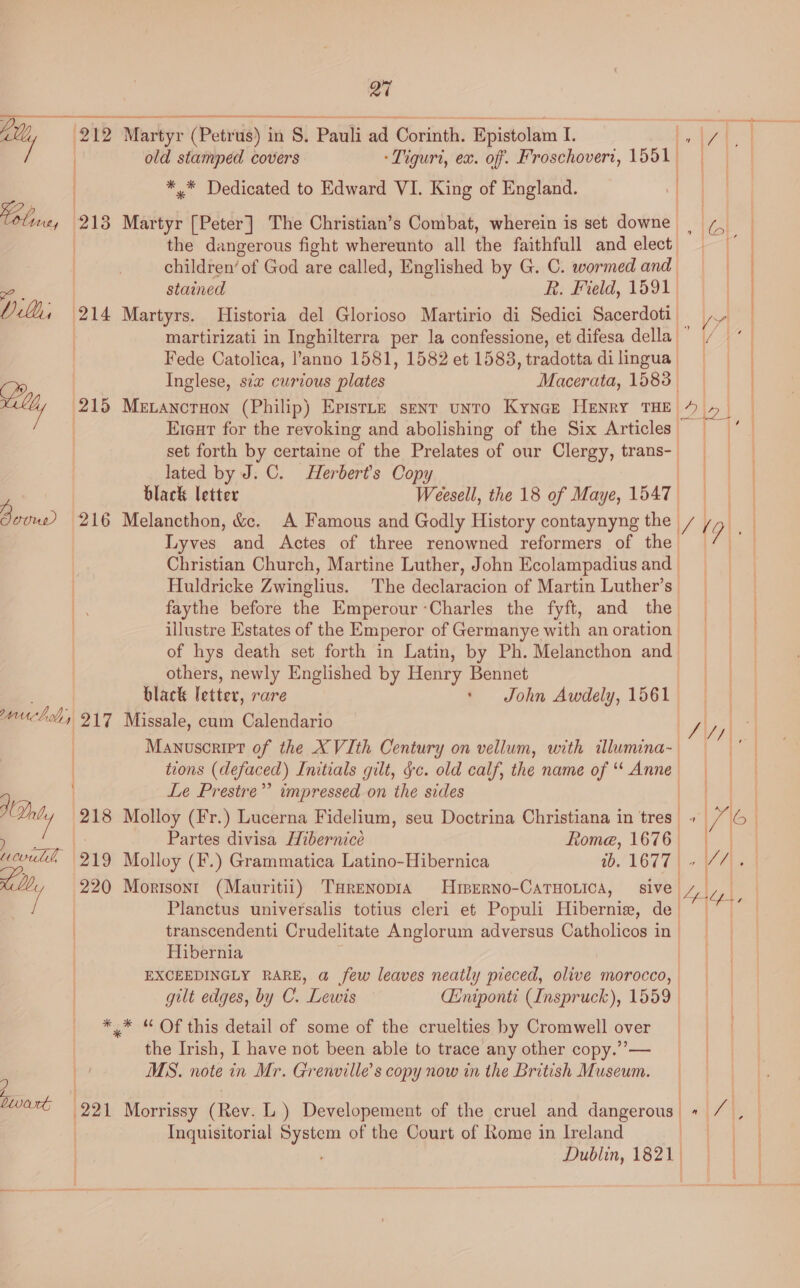 27
Lilly 212 Martyr (Petrus) in S. Pauli ad Corinth. Epistolam I.
old stamped covers Tiguri, ex. off. Froschoveri, 1551
*** Dedicated to Edward VI. King of England.
213 Martyr [Peter] The Christian's Combat, wherein is set downe 6
the dangerous fight whereunto all the faithfull and elect
children of God are called, Englished by G. C. wormed and
stained R. Field, 1591
214 Martyrs. Historia del Glorioso Martirio di Sedici Sacerdoti
martirizati in Inghilterra per la confessione, et difesa della
Fede Catolica, l'anno 1581, 1582 et 1583, tradotta di lingua
Inglese, six curious plates Macerata, 1583
Lilly 215 Melancthon (Philip) Epistle sent unto Kynge Henry the
Eight for the revoking and abolishing of the Six Articles
set forth by certaine of the Prelates of our Clergy, trans-
lated by J. C. Herbert's Copy
black letter Weesell, the 18 of Maye, 1547
Boone 216 Melancthon, &c. A Famous and Godly History contaynyng the
Lyves and Actes of three renowned reformers of the
Christian Church, Martine Luther, John Ecolampadius and
Huldricke Zwinglius. The declaracion of Martin Luther's
faythe before the Emperour Charles the fyft, and the
illustre Estates of the Emperor of Germanye with an oration
of hys death set forth in Latin, by Ph. Melancthon and
others, newly Englished by Henry Bennet
black letter, rare John Awdely, 1561
217 Missale, cum Calendario
Manuscript of the XVIth Century on vellum, with illumina-
tions (defaced) Initials gilt, &c. old calf, the name of “Anne
Le Prestre” impressed on the sides
218 Molloy (Fr.) Lucerna Fidelium, seu Doctrina Christiana in tres 7 6
Partes divisa Hibernicè Romæ, 1676
219 Molloy (F.) Grammatica Latino-Hibernica ib. 1677
Lilly 220 Morisoni (Mauritii) Threnodia Hiberno-Catholica, sive
Planctus universalis totius cleri et Populi Hiberniæ, de
transcendenti Crudelitate Anglorum adversus Catholicos in
Hibernia
exceedingly rare, a few leaves neatly pieced, olive morocco,
gilt edges, by C. Lewis Œniponti (Inspruck), 1559
*** “Of this detail of some of the cruelties by Cromwell over
the Irish, I have not been able to trace any other copy.”—
MS. note in Mr. Grenville's copy now in the British Museum.
221 Morrissy (Rev. L ) Developement of the cruel and dangerous
Inquisitorial System of the Court of Rome in Ireland
Dublin, 1821